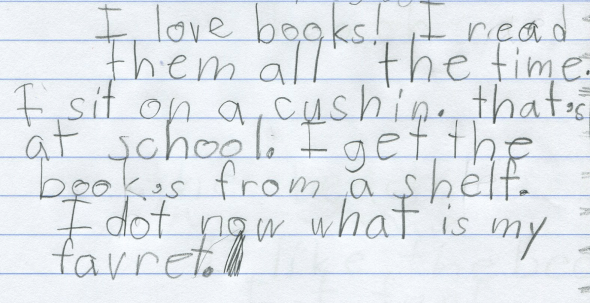 I love books! I read
them all the time.
I sit on a cushin. that's
at school. I get the
book's from a shelf.
I dot now what is my
favret.